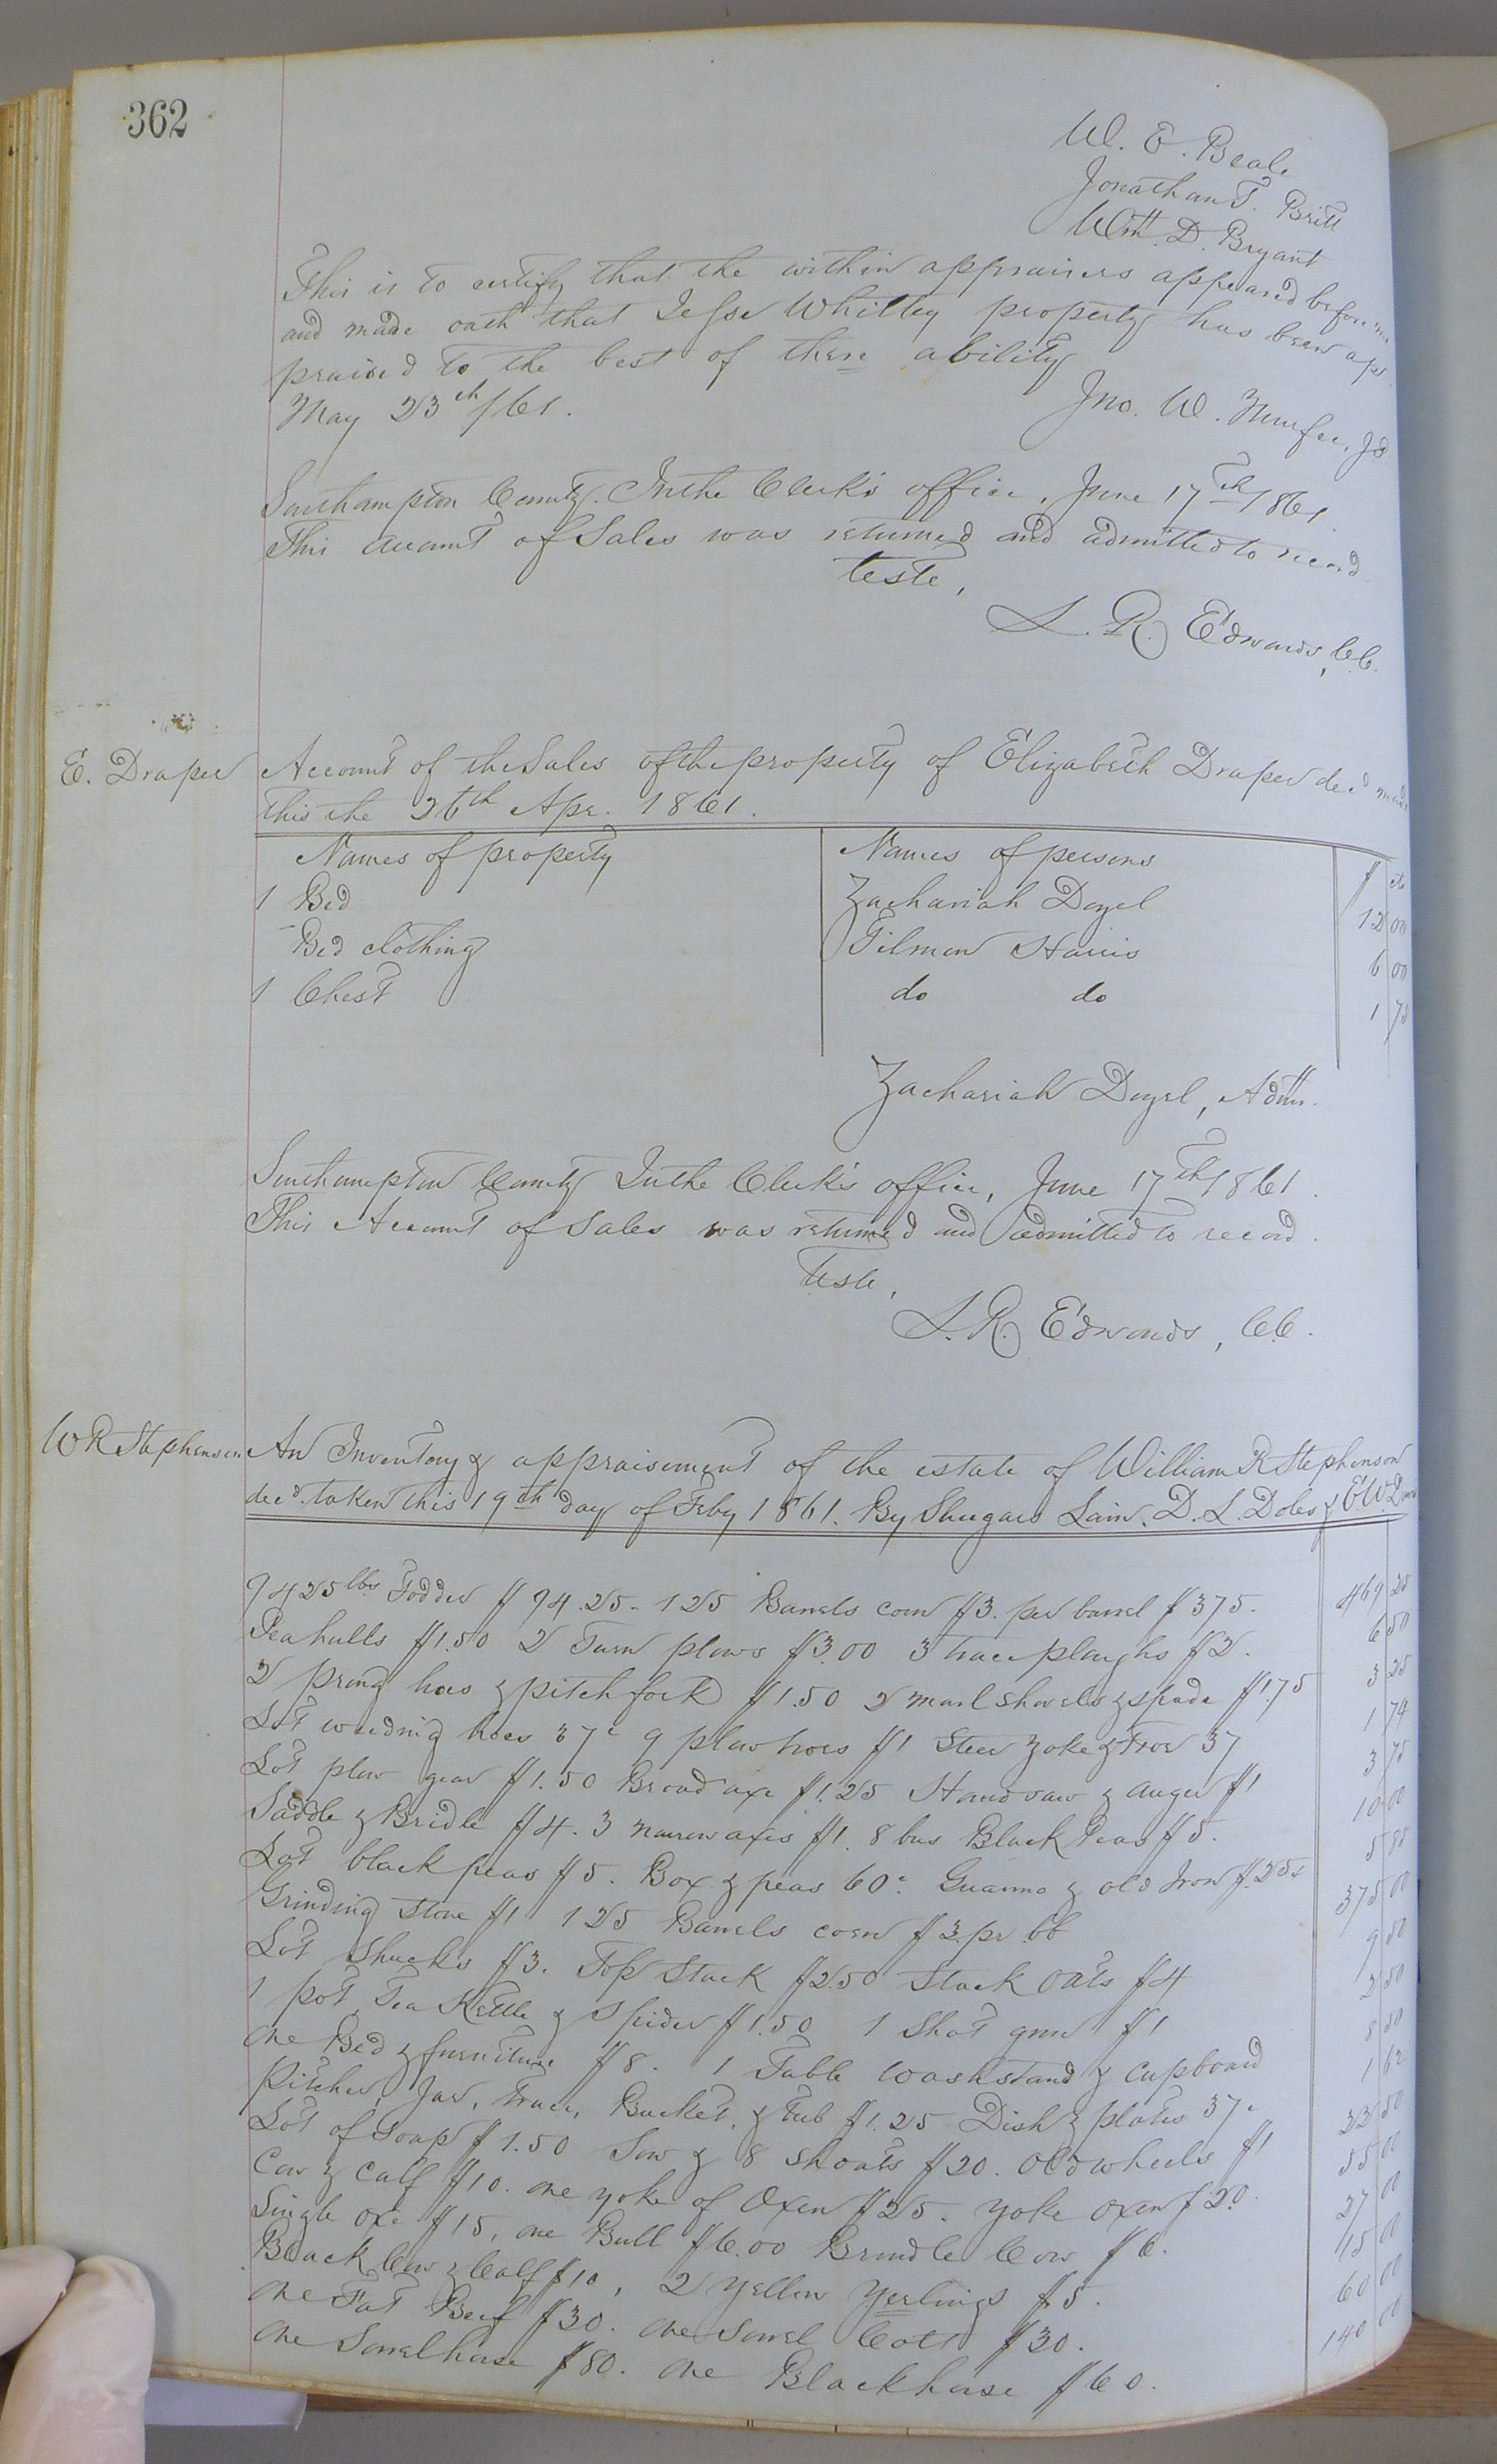 362
W. E. Beale
Jonathan T. Britt
Wm. D. Bryant
This is to certify that the within appraisers appeared before me
and made oath that Jesse Whitley property has been ap
praised to the best of there ability
May 23th /61.
Jno. W. J.P.
Southampton County. In the Clerk's office, June 17th 1861
This account of Sales was returned and admitted to record
teste,
L. R. Edwards, CC.
E. Draper Account of the Sales of the property of Elizabeth Draper decd made
this the 26th Apr. 1861.
Names of property Names of persons $ cts
1 Bed Zachariah Doyel 12 00
Bed clothing Tilmon Harris 6 00
1 Chest do do 1 75
Zachariah Doyel, Admr.
Southampton County In the Clerk's office, June 17th 1861.
This Account of Sales was returned and admitted to record.
teste,
L. R. Edwards, CC.
W R Stephenson An Inventory & appraisement of the estate of William R Stephenson
decd. taken this 19th day of Feby 1861. By Shugars Lain, D. L. Doles & E W.
9425 lbs Fodder $94.25 - 125 Barrels corn $3. per barrel $375. 469 25
Peahulls $1.50 2 Turn plows $3.00 3 trace ploughs $2. 6 50
2 prong hoes & pitchfork $1.50 2 marl shovels & spade $1.75 3 25
Lot weeding hoes 37c 9 plow hoes $1 Steer yoke & Frow 37 1 74
Lot plow gear $1.50 Broad axe $1.25 Handsaw & auger $1 3 75
Saddle & Bridle $4. 3 narrow axes $1. 8 bus Black Peas $5. 10 00
Lot black peas $5. Box & peas 60c. Guanno & old Iron $.25c 5 85
Grinding Stone $1 125 Barrels corn $3 pr bb 375 00
Lot Shucks $3. Top Stack $2.50 Stack Oats $4 9 50
1 pot, Tea Kettle & Spider $1.50 1 Shot gun $1 2 50
One Bed & furniture $8. 1 Table washstand & cupboard 8 50
Pitcher, Jar, Tray, Bucket, & Tub $1.25 Dish & plates 37c 1 62
Lot of Soap $1.50 Sow & 8 shoats $20. Old wheels $1 22 50
Cow & calf $10. one yoke of Oxen $25. yoke oxen $20. 55 00
Single oxe $15, one Bull $6.00 Brindle Cow $6. 27 00
Black Cow & Calf $10, 2 yellow yerlings $5. 15 00
One Fat Beef $30. one Sorrel Colt $30. 60 00
One Sorrel horse $80. one Black horse $60. 140 00